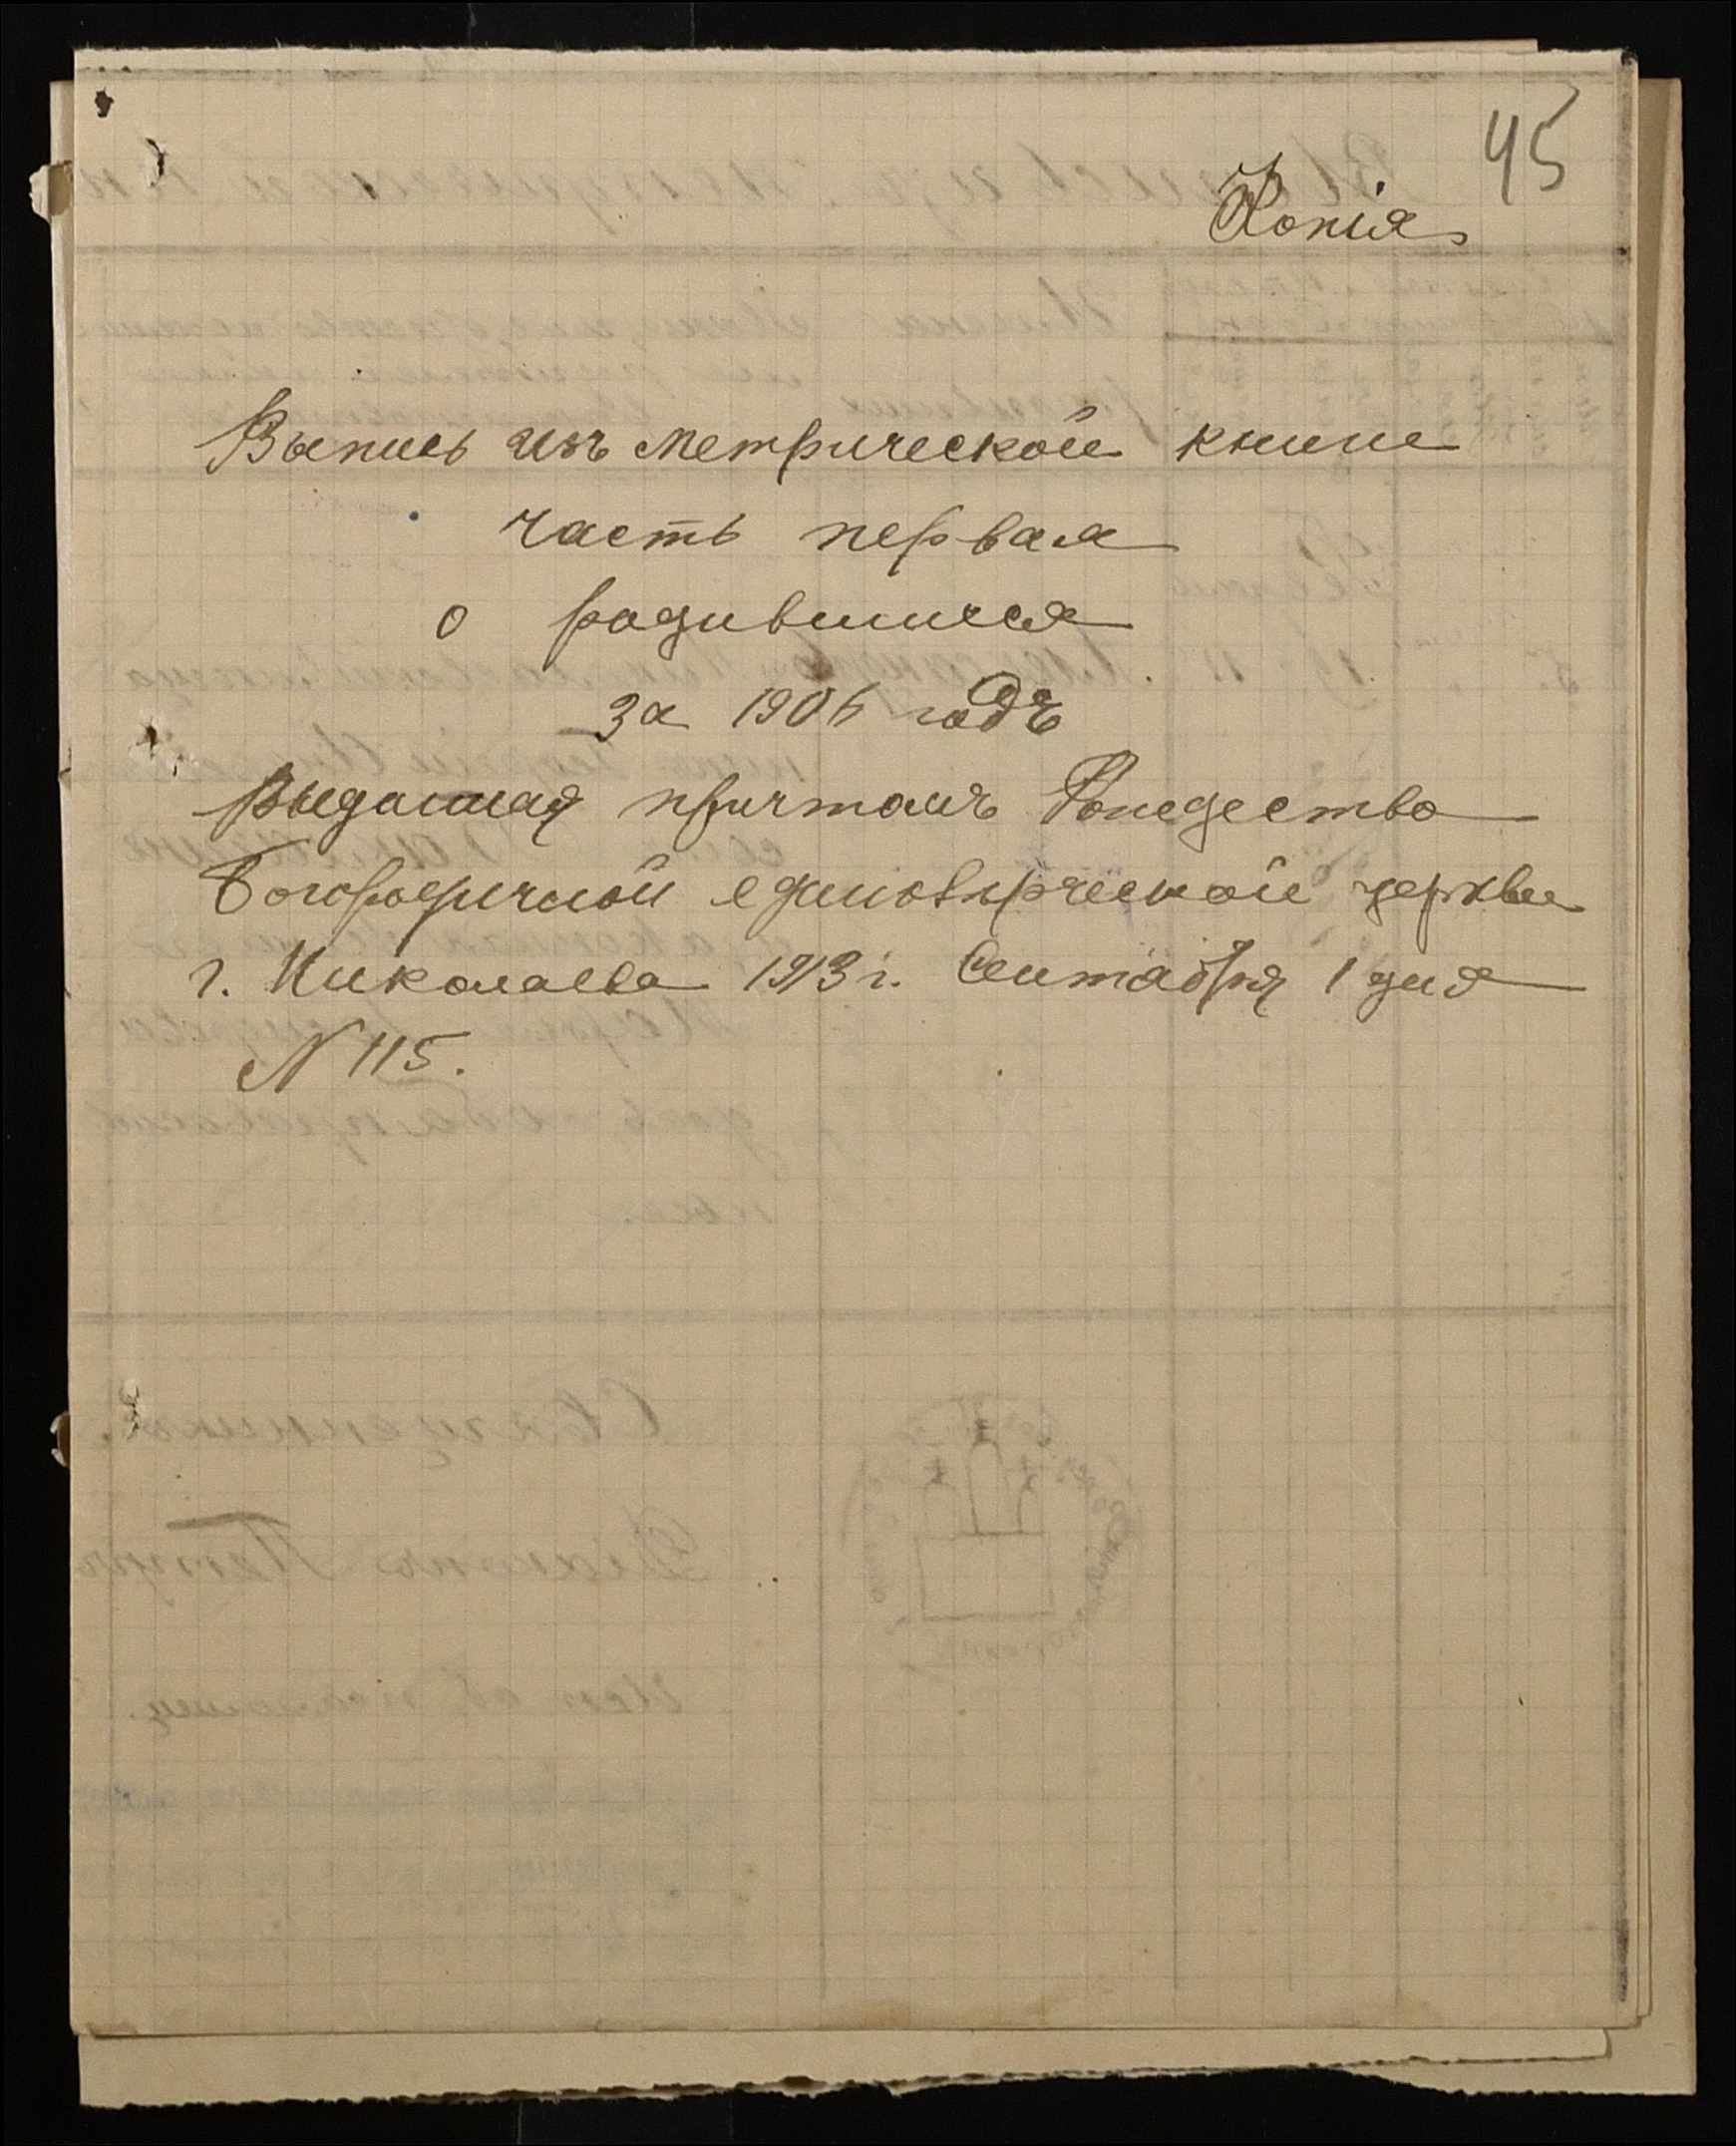 45
Копія
Выпись изъ метрической книги
часть первая
о родившихся
за 1906 годъ
выданная причтомъ Рождество
Богородичной единовѣрческой церкви
г. Николаева 1913 г. Сентября 1 дня
N 115.